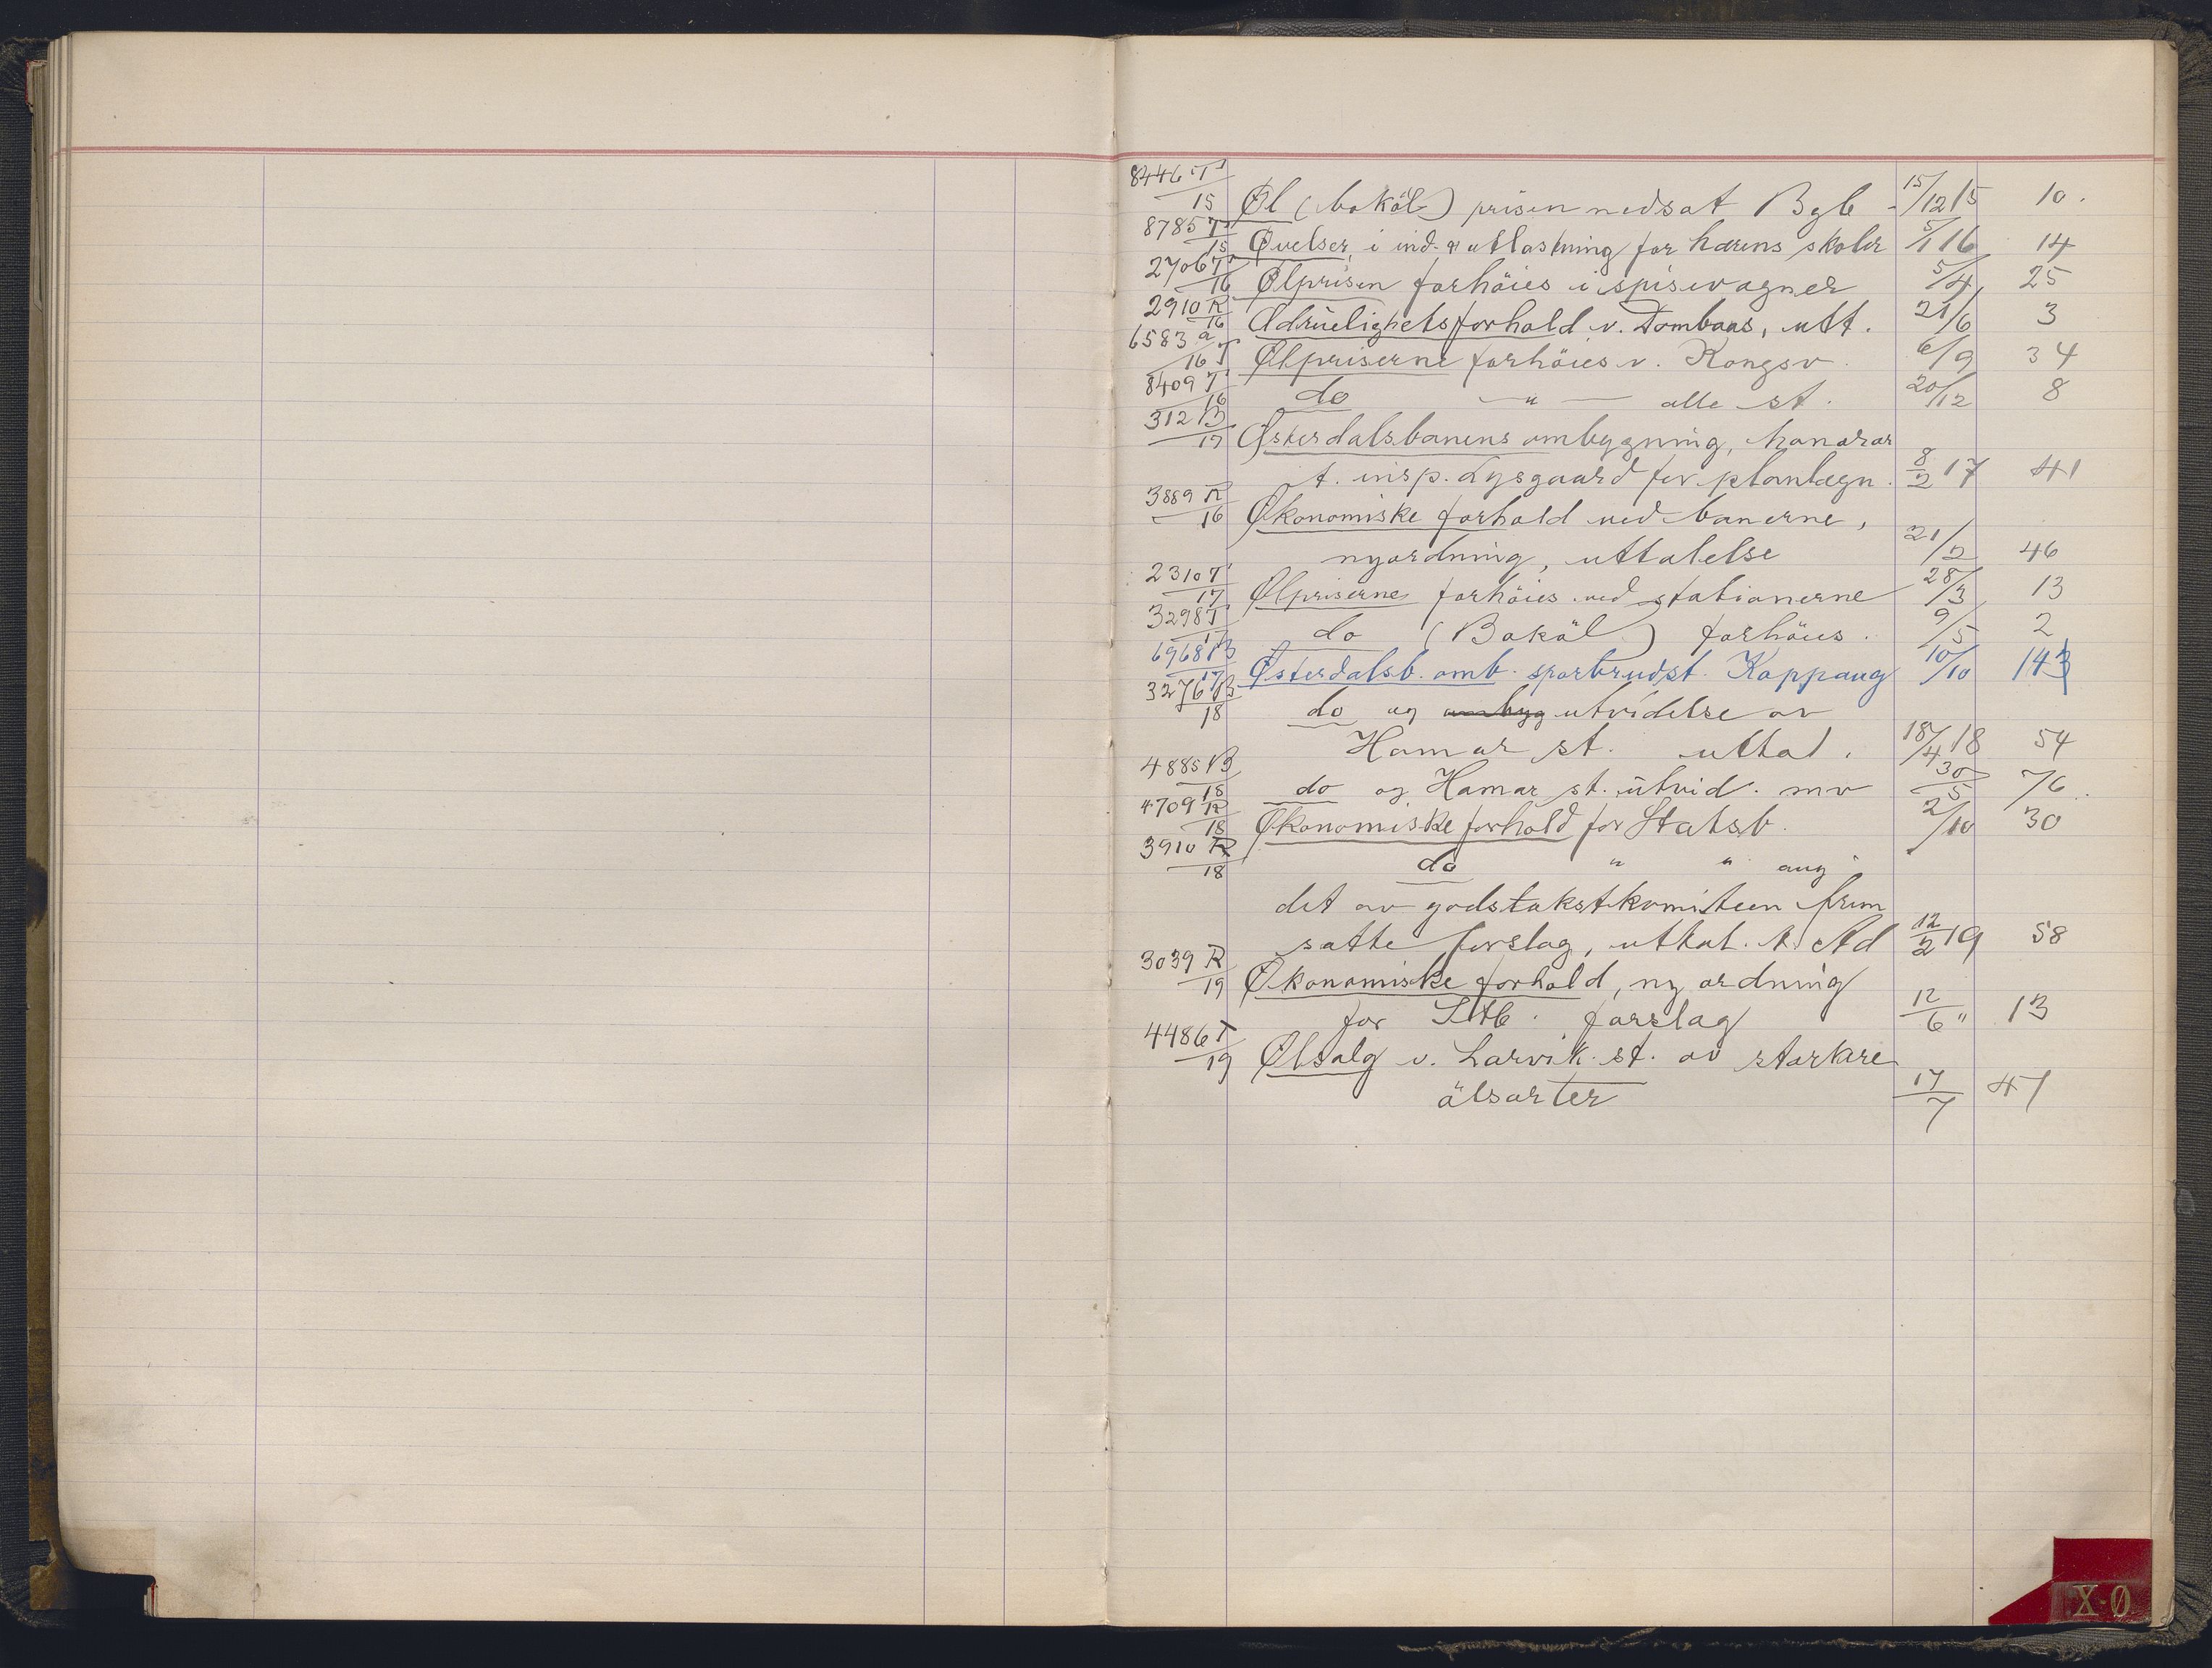 8446 T/15 Øl (boköl) prisen nedsat Bgb - 15/12 15 10.
8785 T/15 Øvelser i ind- & utlastning for hærens skoler 5/1 16 14
2706 T/16 Ølprisen forhöies i spisevogner 5/4 25
2910 R/16 Ædruelighetsforhold v. Dombaas, utt. 21/6 3
6583 a T/16 Ølpriserne forhöies v. Kongsv. 6/9 34
8409 T/16 do — " — alle st. 20/12 8
312 B/17 Østerdalsbanens ombygning, honorar
t. insp. Lysgaard for planlægn. 8/2 17 41
3889 R/16 Økonomiske forhold ved banerne,
nyordning, uttalelse 21/2 46
2310 T/17 Ølpriserne forhöies ved stationerne 28/3 13
3298 T/17 do (Boköl) forhöies. 9/5 2
6968 B/17 Østerdalsb. omb. sporbrudst. Koppang 10/10 143
3276 B/18 do og ombyg utvidelse av
Hamar st. uttal. 18/4 18 54
4885 B/18 do og Hamar st. utvid. mv 30/5 76
4709 R/18 Økonomiske forhold for Statsb. 2/10 30
3910 R/18 do " " ang
det av godstakstkomiteen frem
satte forslag, uttal. t. Ad 12/2 19 58
3039 R/19 Økonomiske forhold, ny ordning
for Stb. forslag 12/6 " 13
4486 T/19 Ølsalg v. Larvik st. av sterkere
ölsorter 17/7 47
X-Ø